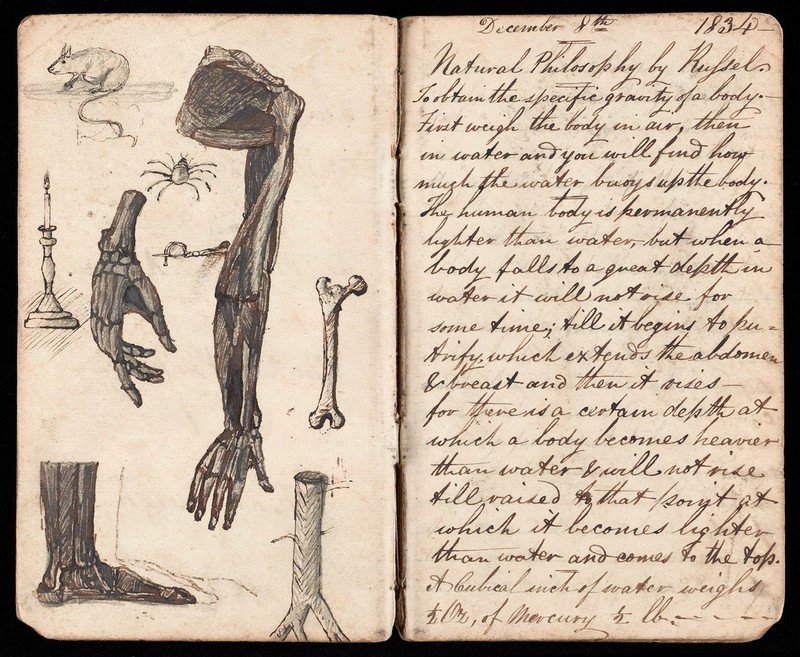 December 8th 1834-
Natural Philosophy by Russel.
To obtain the specific gravity of a body.-
First weigh the body in air, then
in water and you will find how
much the water buoys up the body.
The human body is permanently
lighter than water, but when a
body falls to a great depth in
water it will not rise for
some time; till it begins to pu=
trify, which extends the abdomen
& breast and then it rises-
for there is a certain depth at
which a body becomes heavier
than water & will not rise
till raised to that point at
which it becomes lighter
than water and comes to the top.
A Cubical inch of water weighs
½ Oz, of Mercury ½ lb.- - - -